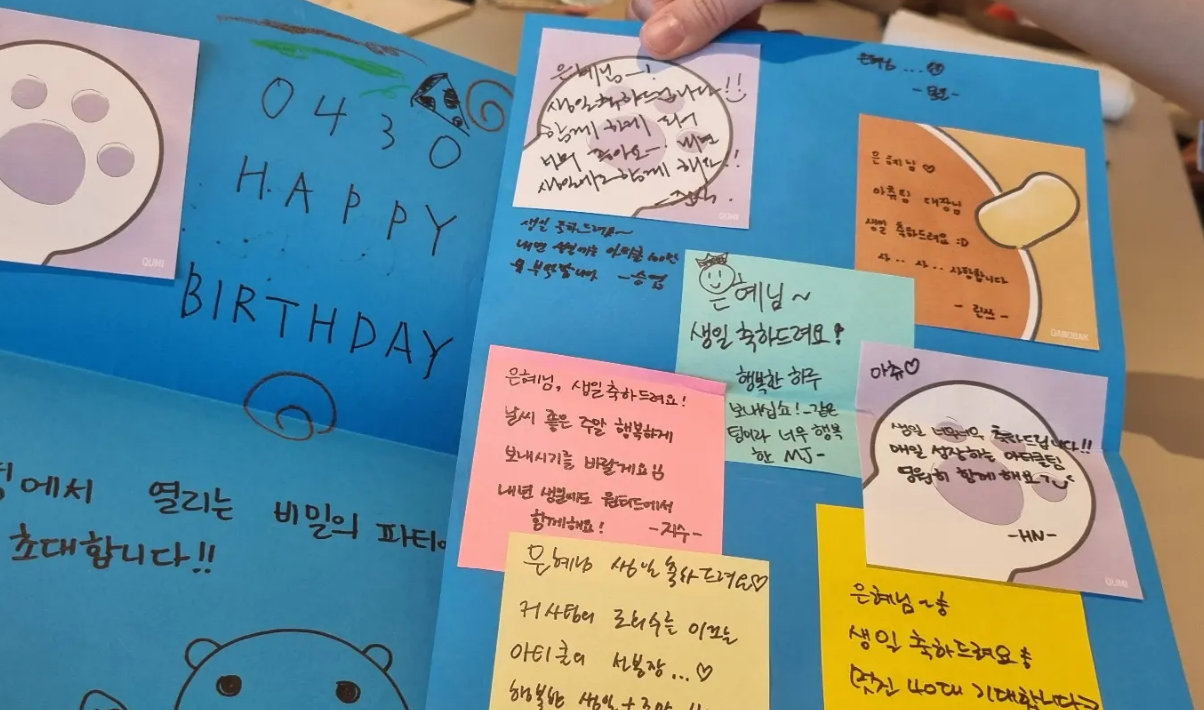 0430
HAPPY
BIRTHDAY
에서 열리는 비밀의 파티에
초대합니다!!
QUMI
은혜님~!
생일축하드립니다!!
함께 하게 되어
너무 좋아요~ 내년
생일에도 함께 해요!!
QUMI
생일 축하드려요~
내년 아티클 100만
-승엽
은혜님...
은혜님♡
아츄팀 대장님
생일 축하드려요 :D
사..사..사랑합니다
-린쓰-
은혜님~
생일 축하드려요!
행복한 하루
보내십쇼!-같은
팀이라 너무 행복
한 MJ-
은혜님, 생일축하드려요!
날씨 좋은 주말 행복하게
보내시기를 바랄게요
내년 생일에도 원티드에서
함께해요! -지수-
아츄♡
생일 너무너무 축하드립니다!!
매일 성장하는 아티클팀
영원히 함께해요
-HN-
QUMI
은혜님 생일축하드려요♡
커사팀의 이끄는
아티클의 선봉장...♡
행복한 생일
은혜님~
생일 축하드려요
멋진 40대 기대합니다